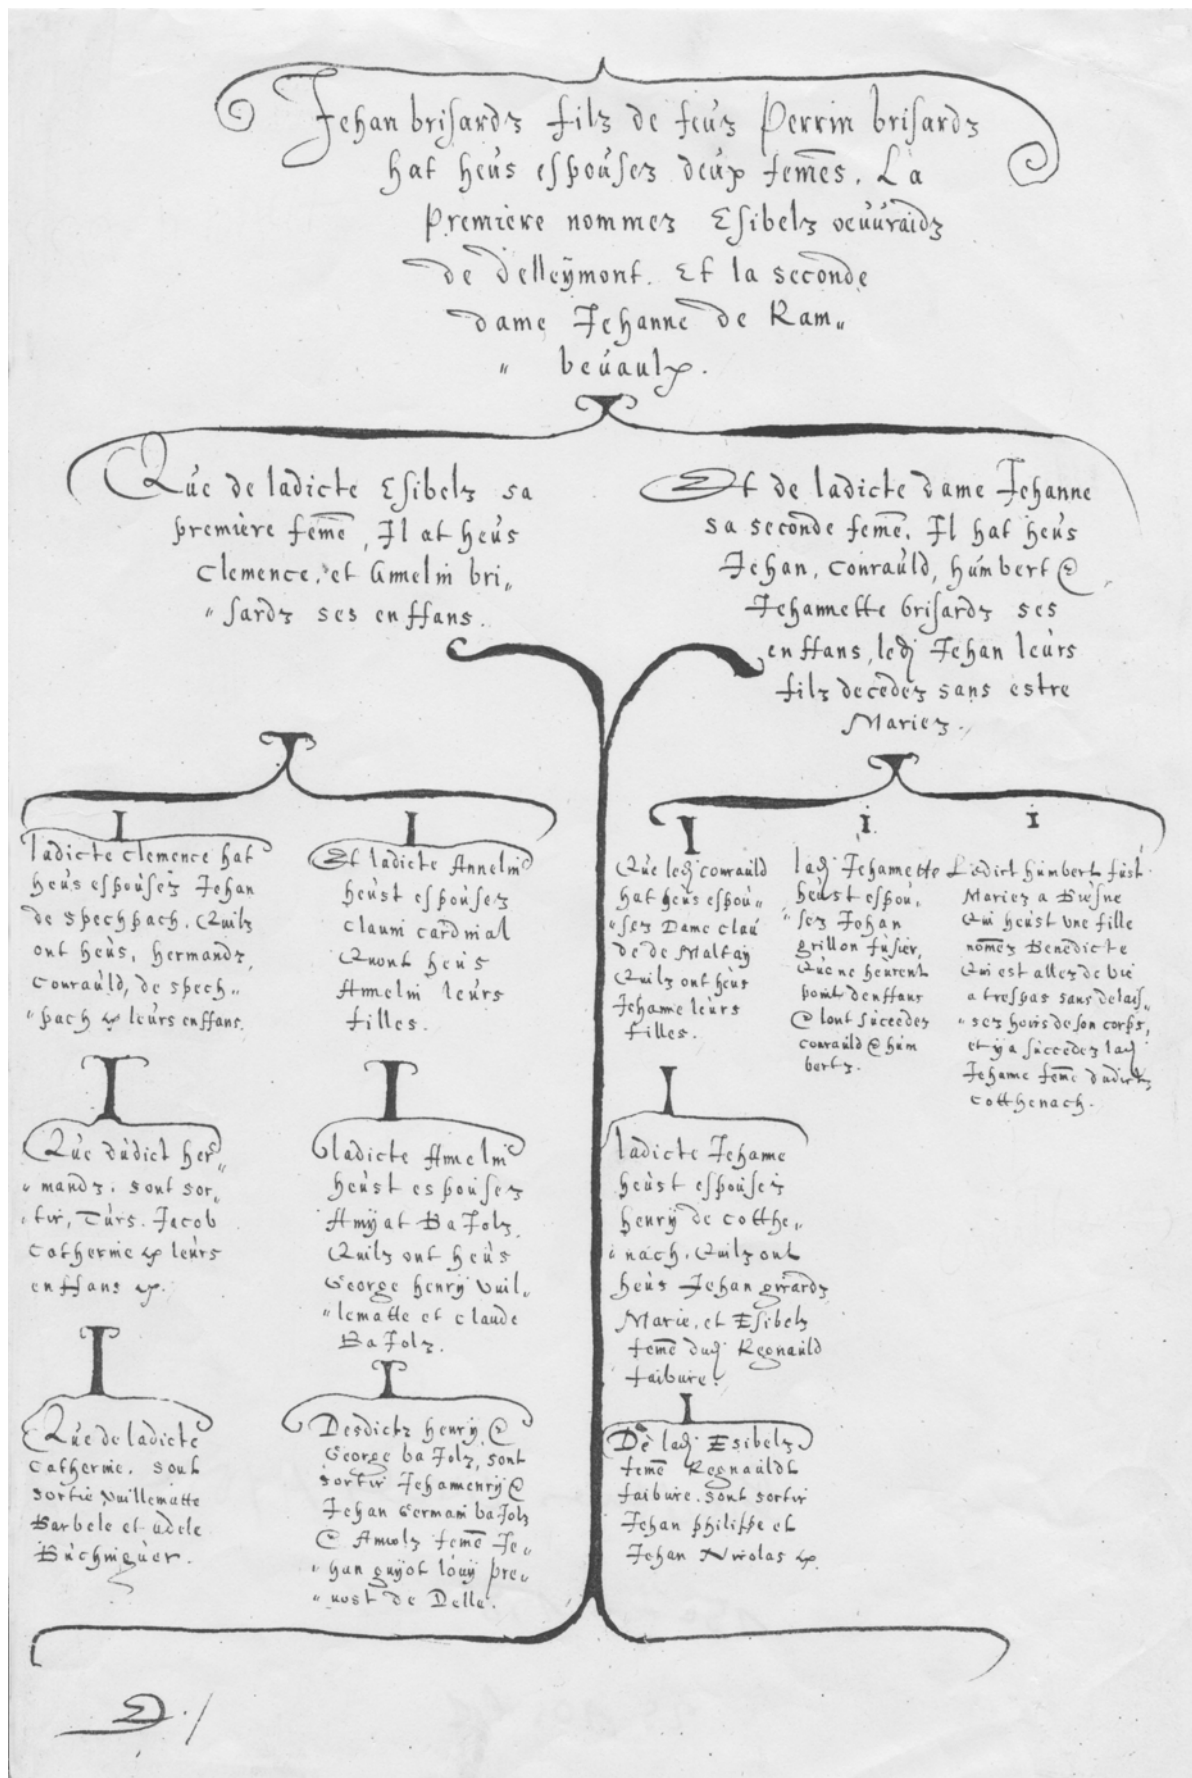 Jehan brisardz filz de feuz Perrin brisardz
hat heus espousez deux femes. La
Premiere nommez Esibelz veuuraidz
de Delleymont. Et la seconde
dame Jehanne de Ram„
„ beuaulx.
Que de ladicte Esibelz sa
premiere feme, Il at heus
Clemence, et Annelin bri„
„ sardz ses enffans.
Et de ladicte dame Jehanne
sa seconde feme. Il hat heus
Jehan, Conrauld, humbert &
Jehannette brisardz ses
enffans, ledj Jehan leurs
filz decedez sans estre
Mariez.
ladicte clemence hat
heus espousez Jehan
de Spechpach. Quilz
ont heus, hermandz,
Conrauld, de spech„
„ pach & leurs enffans.
Et ladicte Annelin
heust espousez
Claunj cardinal
Quont heus
Annelin leurs
filles.
Que ledj conrauld
hat heus espou„
„ sez Dame clau
de de Maltay
Quilz ont heus
Jehanne leurs
filles.
ladj Jehannette
heust espou„
„ sez Jehan
grillon fusier,
Que ne heurent
point denffans
& lont succedez
conrauld & hum
bertz.
Ledict humbert fust
Mariez a Buesne
Qui heust une fille
nomez Benedicte
Qui est allez de vie
a trespas sans delais„
„ sez hoirs de son corps,
et y a succedez ladj
Jehanne feme dudictz
cotthenach.
Que dudict her„
„ mandz. sont sor„
„ tir, Turs. Jacob
Catherine & leurs
enffans &.
ladicte Annelin
heust espousez
Amyat BaJolz,
Quilz ont heus
George henry Vuil„
„ lematte et claude
BaJolz.
ladicte Jehanne
heust espousez
henry de cotthe„
„ nach. Quilz ont
heus Jehan girardz
Marie, et Esibelz
feme dudj Regnauld
faibure.
Que de ladicte
Catherine. sont
sortir vuillematte
Barbele et adele
Buchniguer.
Desdictz henry &
George baJolz, sont
sortir Jehanhenry &
Jehan Germain baJolz
& feme Je„
„ han guyot louy pre„
„ uost de Delle.
De ladj Esibelz
feme Regnauldt
faibure. sont sortir
Jehan philippe et
Jehan Nicolas &.